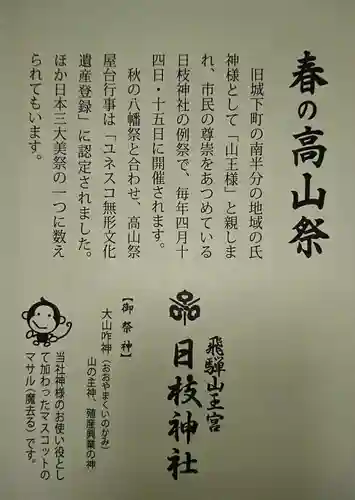 春の高山祭
旧城下町の南半分の地域の氏
神様として「山王様」と親しま
れ、市民の尊崇をあつめている
日枝神社の例祭で、毎年四月十
四日・十五日に開催されます。
秋の八幡祭と合わせ、高山祭
屋台行事は「ユネスコ無形文化
遺産登録」に認定されました。
ほか日本三大美祭の一つに数え
られてもいます。
飛騨山王宮
日枝神社
【御祭神】
大山咋神(おおやまくいのかみ)
山の主神、殖産興業の神
当社神様のお使い役とし
て加わったマスコットの
マサル(魔去る)です。